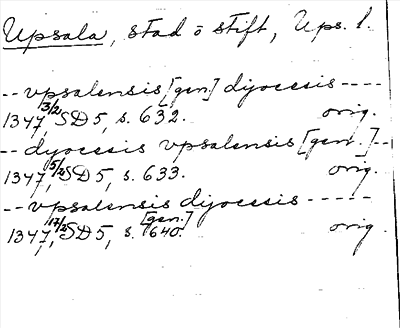 Upsala, stad o stift, Ups. l.
-- vpsalensis [gen.] dijocesis ----
1347, 3/2 SD 5, s. 632. orig.
-- dyocesis vpsalensis [gen.] --
1347, 5/2 SD 5, s. 633. orig.
-- vpsalensis dijocesis [gen.] -----
1347, 17/2 SD 5, s. 640. orig.